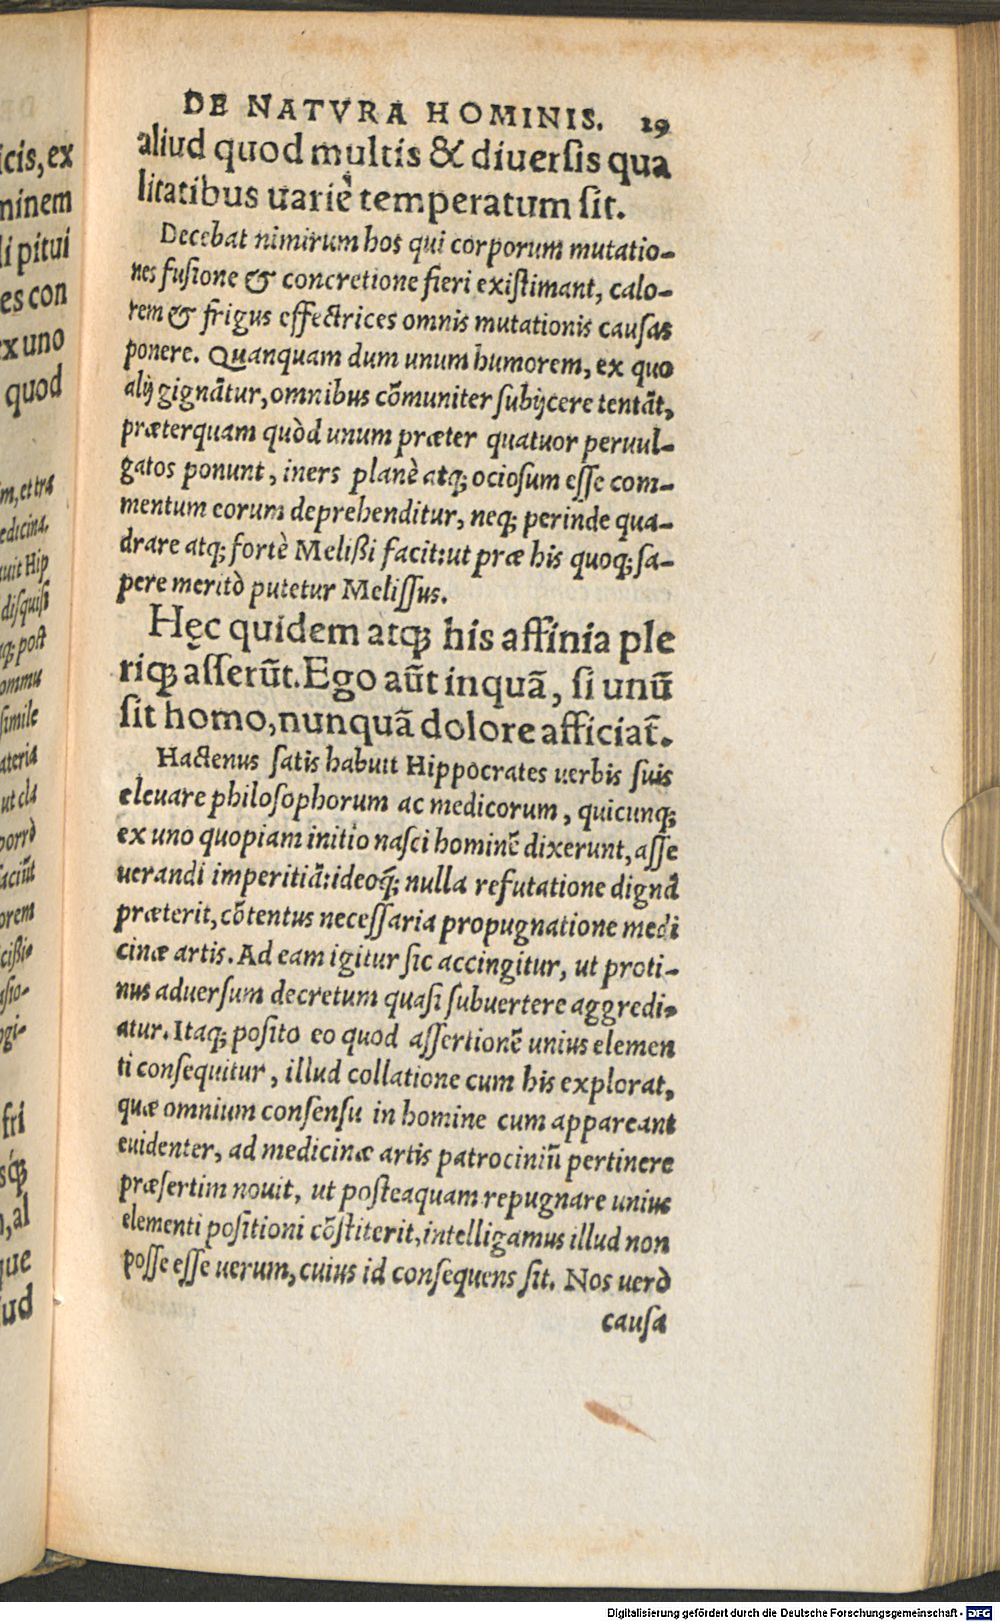 DE NATVRA HOMINIS. 19
aliud quod multis & diuersis qua
litatibus uariè temperatum sit.
Decebat nimirum hos qui corporum mutatio-
nes fusione & concretione fieri existimant, calo-
rem & frigus effectrices omnis mutationis causas
ponere. Quanquam dum unum humorem, ex quo
alij gignātur, omnibus cōmuniter subijcere tentāt,
præterquam quòd unum præter quatuor peruul-
gatos ponunt, iners planè atq; ociosum esse com-
mentum eorum deprehenditur, neq; perinde qua-
drare atq; fortè Melißi facit: ut præ his quoq; sa-
pere meritò putetur Melissus.
Hęc quidem atq; his affinia ple
riq; asserūt. Ego aūt inquā, si unū
sit homo, nunquā dolore afficiat̃.
Hactenus satis habuit Hippocrates uerbis suis
eleuare philosophorum ac medicorum, quicunq;
ex uno quopiam initio nasci hominē dixerunt, asse
uerandi imperitiā: ideoq́; nulla refutatione dignā
præterit, cōtentus necessaria propugnatione medi
cinæ artis. Ad eam igitur sic accingitur, ut proti-
nus aduersum decretum quasi subuertere aggredi-
atur. Itaq; posito eo quod assertionē unius elemen
ti consequitur, illud collatione cum his explorat,
quæ omnium consensu in homine cum appareant
euidenter, ad medicinæ artis patrociniū pertinere
præsertim nouit, ut posteaquam repugnare unius
elementi positioni cōstiterit, intelligamus illud non
posse esse uerum, cuius id consequens sit. Nos uerò
causa
icis, ex
minem
li pitui
es con
ex uno
quod
im, et træ
edicina.
uit Hip
disquisi
q; post
ommu
simile
ateria
ut cla
porrò
aciūt
orem
cißi-
usio-
ogi-
fri
sq́;
n, al
que
ud
Digitalisierung gefördert durch die Deutsche Forschungsgemeinschaft - DFG